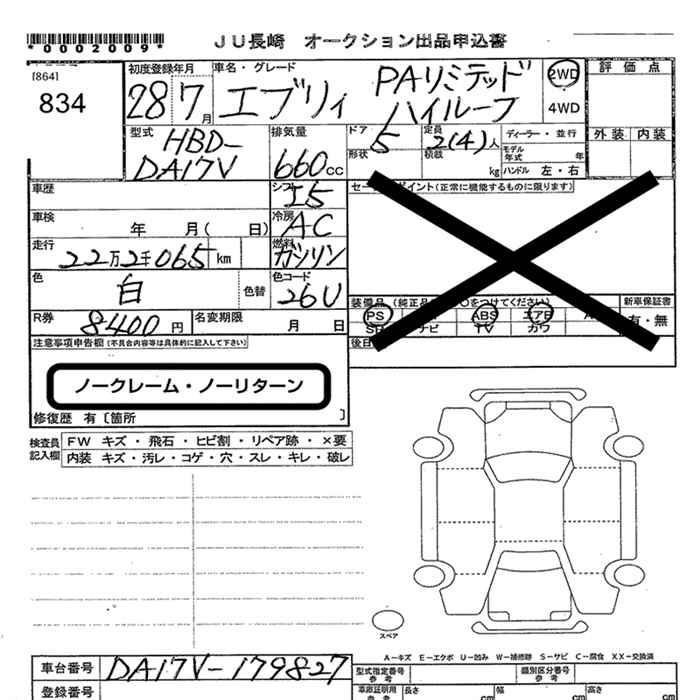 *0002009*
JU長崎 オークション出品申込書
[864]
834
初度登録年月 28 7月
車名・グレード エブリィ PAリミテッド ハイルーフ
2WD
4WD
評価点
外装 内装
型式 HBD-DA17V
排気量 660cc
ドア 5
形状
定員 2(4)人
積載 kg
ディーラー・並行
モデル年式 年
ハンドル 左・右
車歴
シフト I5
車検 年 月( 日)
冷房 AC
走行 22万2千065km
燃料 ガソリン
色 白 色替
色コード 26U
R券 8400円
名変期限 月 日
ポイント(正常に機能するものに限ります)
装備品 (純正品 ○をつけてください)
PS ABS エアB
ナビ TV カワ
新車保証書
有・無
後日
注意事項申告欄(不具合内容等は具体的に記入して下さい)
ノークレーム・ノーリターン
修復歴 有〔箇所 〕
検査員記入欄
FW キズ・飛石・ヒビ割・リペア跡・×要
内装 キズ・汚レ・コゲ・穴・スレ・キレ・破レ
スペア
A－キズ E－エクボ U－凹み W－補修跡 S－サビ C－腐食 XX－交換済
車台番号 DA17V-179827
型式指定番号 参考
類別区分番号 参考
登録番号
車庫証明用 参考 長さ cm 幅 cm 高さ cm